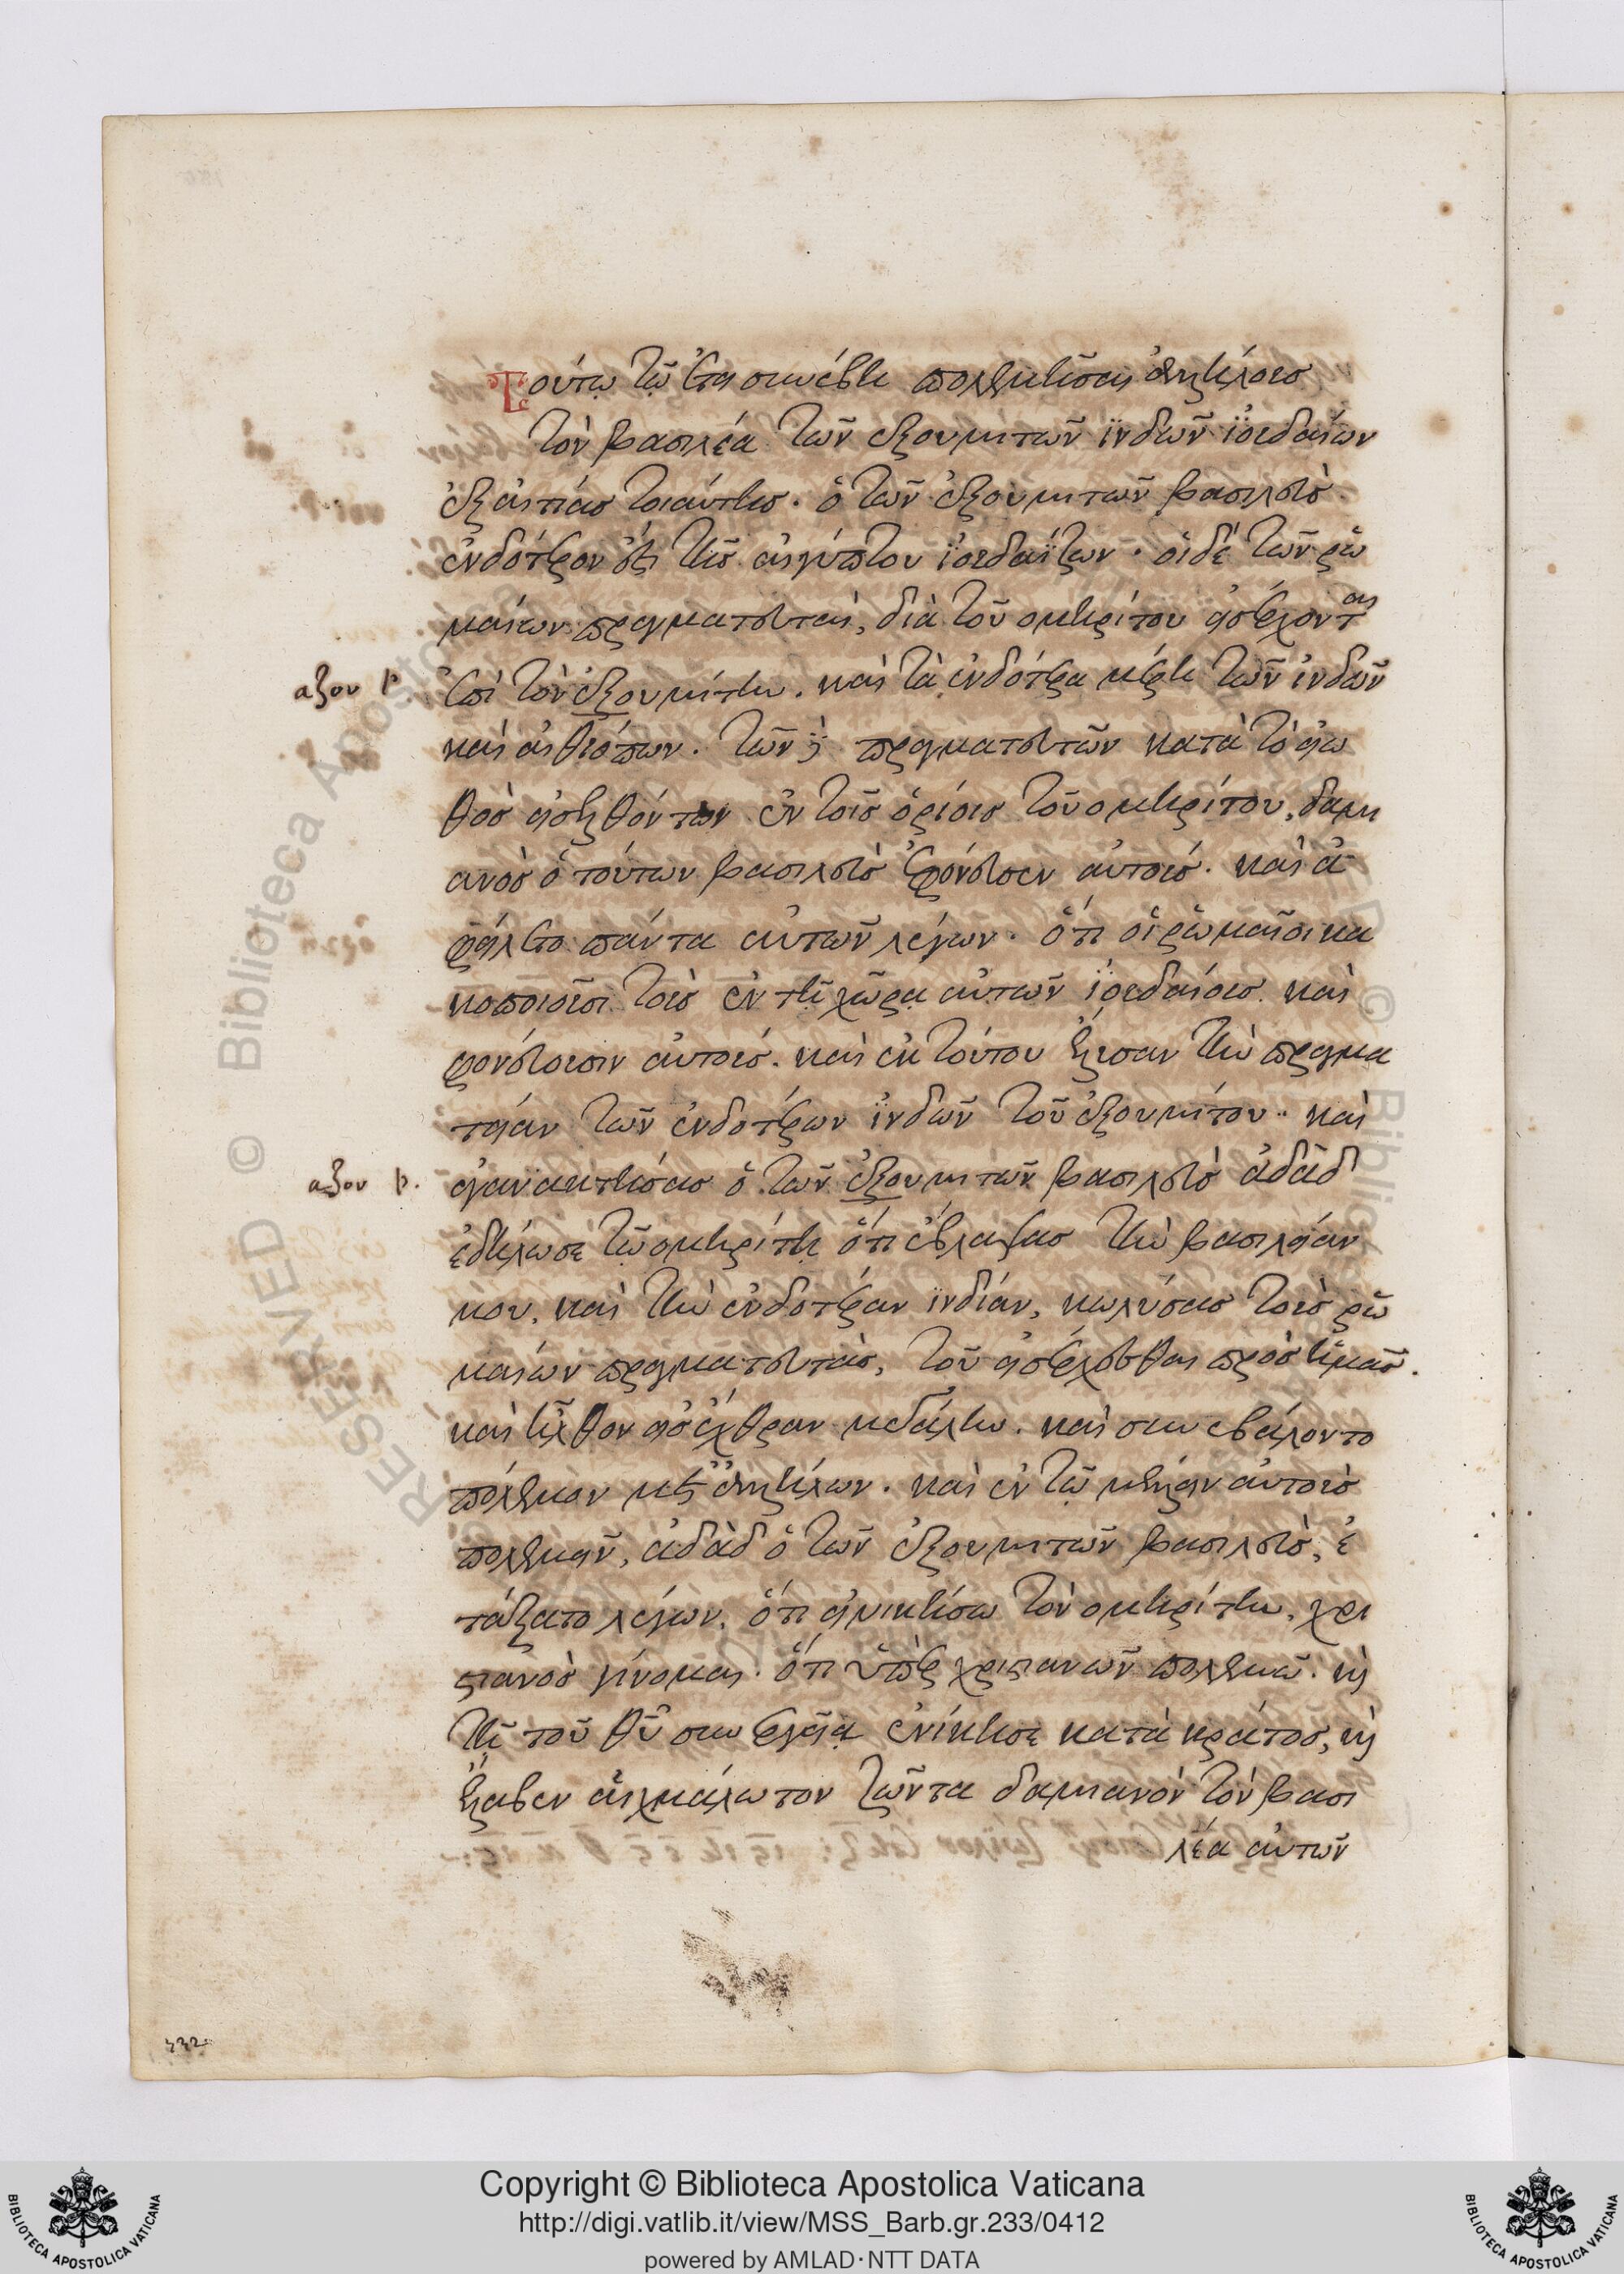 Τούτῳ τῷ ἔτει συνέβη πολεμῆσαι ἀλλήλοις
τὸν βασιλέα τῶν ἐξουμιτῶν ϊνδῶν ϊουδαίων
ἐξ αἰτίας τοιαύτης. ὁ τῶν ἐξουμιτῶν βασιλεὺς
ἐνδότερον ἐστι τῆς αἰγύπτου ϊουδαΐζων. οἱ δὲ τῶν ῥω
μαίων πραγματευταὶ, διὰ τοῦ ομηρίτου εἰσέρχονται
αξου μ
ἐπὶ τὸν ἐξουμίτην. καὶ τὰ ἐνδότερα μέρη τῶν ἰνδῶν
καὶ αἰθιόπων. τῶν δὲ πραγματευτῶν κατὰ τὸ εἰω
θὸς εἰσελθόντων ἐν τοῖς ὁρίοις τοῦ ομηρίτου, δαμι
ανὸς ὁ τούτων βασιλεὺς ἐφόνευσεν αὐτούς. καὶ ἀ
φείλετο πάντα αὐτῶν λέγων. ὅτι οἱ ῥωμαῖοι κα
κοποιοῦσι τοὺς ἐν τῇ χῶρᾳ αὐτῶν ϊουδαίους. καὶ
φονεύουσιν αὐτούς. καὶ ἐκ τούτου ἔλυσαν τὴν πραγμα
τείαν τῶν ἐνδοτέρων ϊνδῶν τοῦ ἐξουμίτου. καὶ
αξου μ.
ἀγανακτήσας ὁ τῶν ἐξουμιτῶν βασιλεὺς ἀδὰδ
ἐδήλωσε τῷ ομηρίτῃ ὅτι ἔβλαψας τὴν βασιλείαν
μου. καὶ τὴν ἐνδοτέραν ϊνδίαν, κωλύσας τοὺς ῥω
μαίων πραγματευτὰς, τοῦ εἰσέρχεσθαι πρὸς ἡμᾶς.
καὶ ἦλθον εἰς ἔχθραν μεγάλην. καὶ συνεβάλοντο
πόλεμον μετ ἀλλήλων. καὶ ἐν τῷ μέλλειν αὐτοὺς
πολεμεῖν, ἀδὰδ ὁ τῶν ἐξουμιτῶν βασιλεὺς, ἐ
τάξατο λέγων, ὅτι εἰ νικήσω τὸν ομηρίτην, χρι
στιανὸς γίνομαι. ὅτι ὑπὲρ χριστιανῶν πολεμῶ. καὶ
τῇ τοῦ θῦ συνεργείᾳ ἐνίκησε κατὰ κράτος, καὶ
ἔλαβεν αἰχμάλωτον ζῶντα δαμιανὸν τὸν βασι
λέα αὐτῶν
Copyright © Biblioteca Apostolica Vaticana
http://digi.vatlib.it/view/MSS_Barb.gr.233/0412
powered by AMLAD·NTT DATA